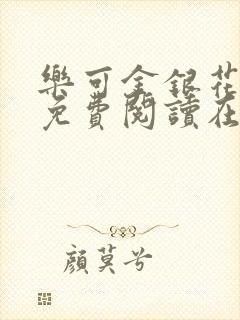 樂可金銀花
免費閱讀在
顏莫兮